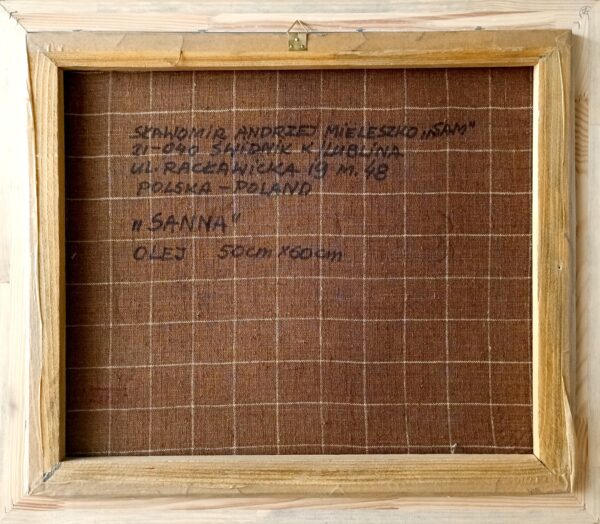 SŁAWOMIR ANDRZEJ MIELESZKO „SAM"
21-040 ŚWIDNIK K/LUBLINA
UL. RACŁAWICKA 19 M. 48
POLSKA - POLAND
„SANNA"
OLEJ 50cm x 60cm